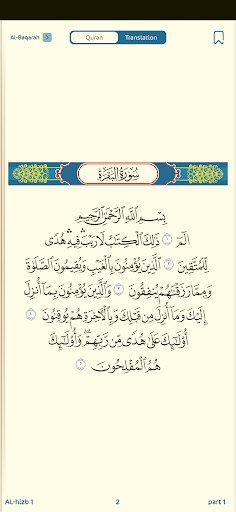 AL-Baqarah
Quran Translation
سُورَةُ البَقَرَةِ
بِسْمِ اللَّهِ الرَّحْمَٰنِ الرَّحِيمِ
الٓمٓ ١ ذَٰلِكَ ٱلْكِتَٰبُ لَا رَيْبَ ۛ فِيهِ ۛ هُدًى
لِّلْمُتَّقِينَ ٢ ٱلَّذِينَ يُؤْمِنُونَ بِٱلْغَيْبِ وَيُقِيمُونَ ٱلصَّلَوٰةَ
وَمِمَّا رَزَقْنَٰهُمْ يُنفِقُونَ ٣ وَٱلَّذِينَ يُؤْمِنُونَ بِمَآ أُنزِلَ
إِلَيْكَ وَمَآ أُنزِلَ مِن قَبْلِكَ وَبِٱلْءَاخِرَةِ هُمْ يُوقِنُونَ ٤
أُو۟لَٰٓئِكَ عَلَىٰ هُدًى مِّن رَّبِّهِمْ ۖ وَأُو۟لَٰٓئِكَ
هُمُ ٱلْمُفْلِحُونَ ٥
AL-hizb 1 2 part 1